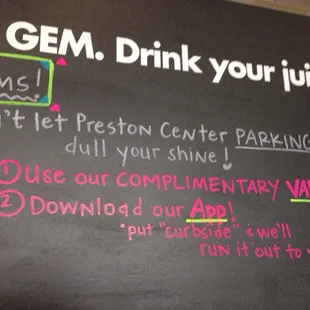 GEM. Drink your jui
ns!
't let Preston Center PARKING
dull your shine!
① Use our COMPLIMENTARY VA
② Download our App!
*put "curbside" & we'll
run it out to